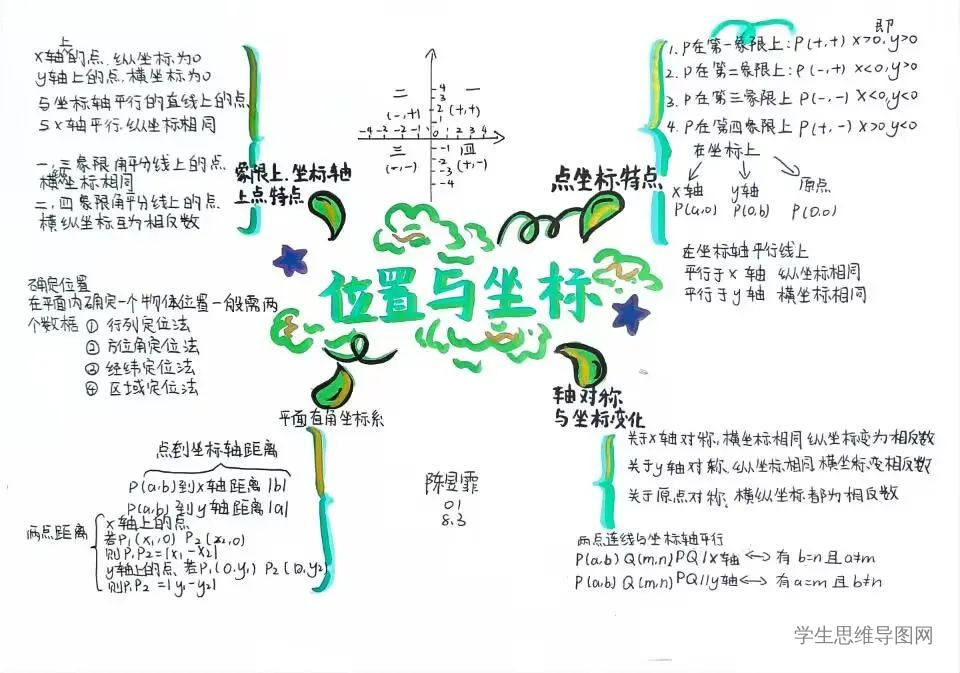 位置与坐标
象限上、坐标轴
上点特点
上
x轴的点,纵坐标为0
y轴上的点,横坐标为0
与坐标轴平行的直线上的点
与x轴平行.纵坐标相同
一,三象限角平分线上的点
横纵坐标相同
二,四象限角平分线上的点
横纵坐标互为相反数
二 一
(-,+) (+,+)
三 四
(-,-) (+,-)
-4 -3 -2 -1 0 1 2 3 4
4
3
2
1
-1
-2
-3
-4
点坐标特点
即
1. P在第一象限上:P(+,+) x>0,y>0
2. P在第二象限上:P(-,+) x<0,y>0
3. P在第三象限上 P(-,-) x<0,y<0
4. P在第四象限上 P(+,-) x>0 y<0
在坐标上
x轴 y轴 原点
P(a,0) P(0,b) P(0,0)
在坐标轴平行线上
平行于x轴 纵坐标相同
平行于y轴 横坐标相同
确定位置
在平面内确定一个物体位置一般需两
个数据 ① 行列定位法
② 方位角定位法
③ 经纬定位法
④ 区域定位法
平面直角坐标系
点到坐标轴距离
P(a,b)到x轴距离|b|
P(a,b)到y轴距离|a|
两点距离
x轴上的点
若P₁(x₁,0) P₂(x₂,0)
则P₁P₂=|x₁-x₂|
y轴上的点 若P₁(0,y₁) P₂(0,y₂)
则P₁P₂=|y₁-y₂|
陈昱霏
01
8.3
轴对称
与坐标变化
关于x轴对称,横坐标相同 纵坐标变为相反数
关于y轴对称.纵坐标相同 横坐标变相反数
关于原点对称、横纵坐标都为相反数
两点连线与坐标轴平行
P(a,b) Q(m,n) PQ//x轴<-->有 b=n 且 a≠m
P(a,b) Q(m,n) PQ//y轴<-->有 a=m 且 b≠n
学生思维导图网